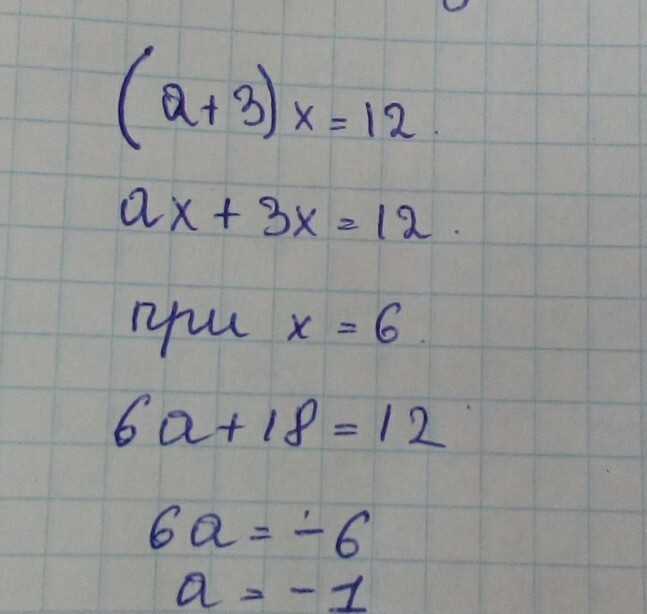 (a+3)x=12.
ax+3x=12.
при x=6.
6a+18=12
6a=-6
a=-1